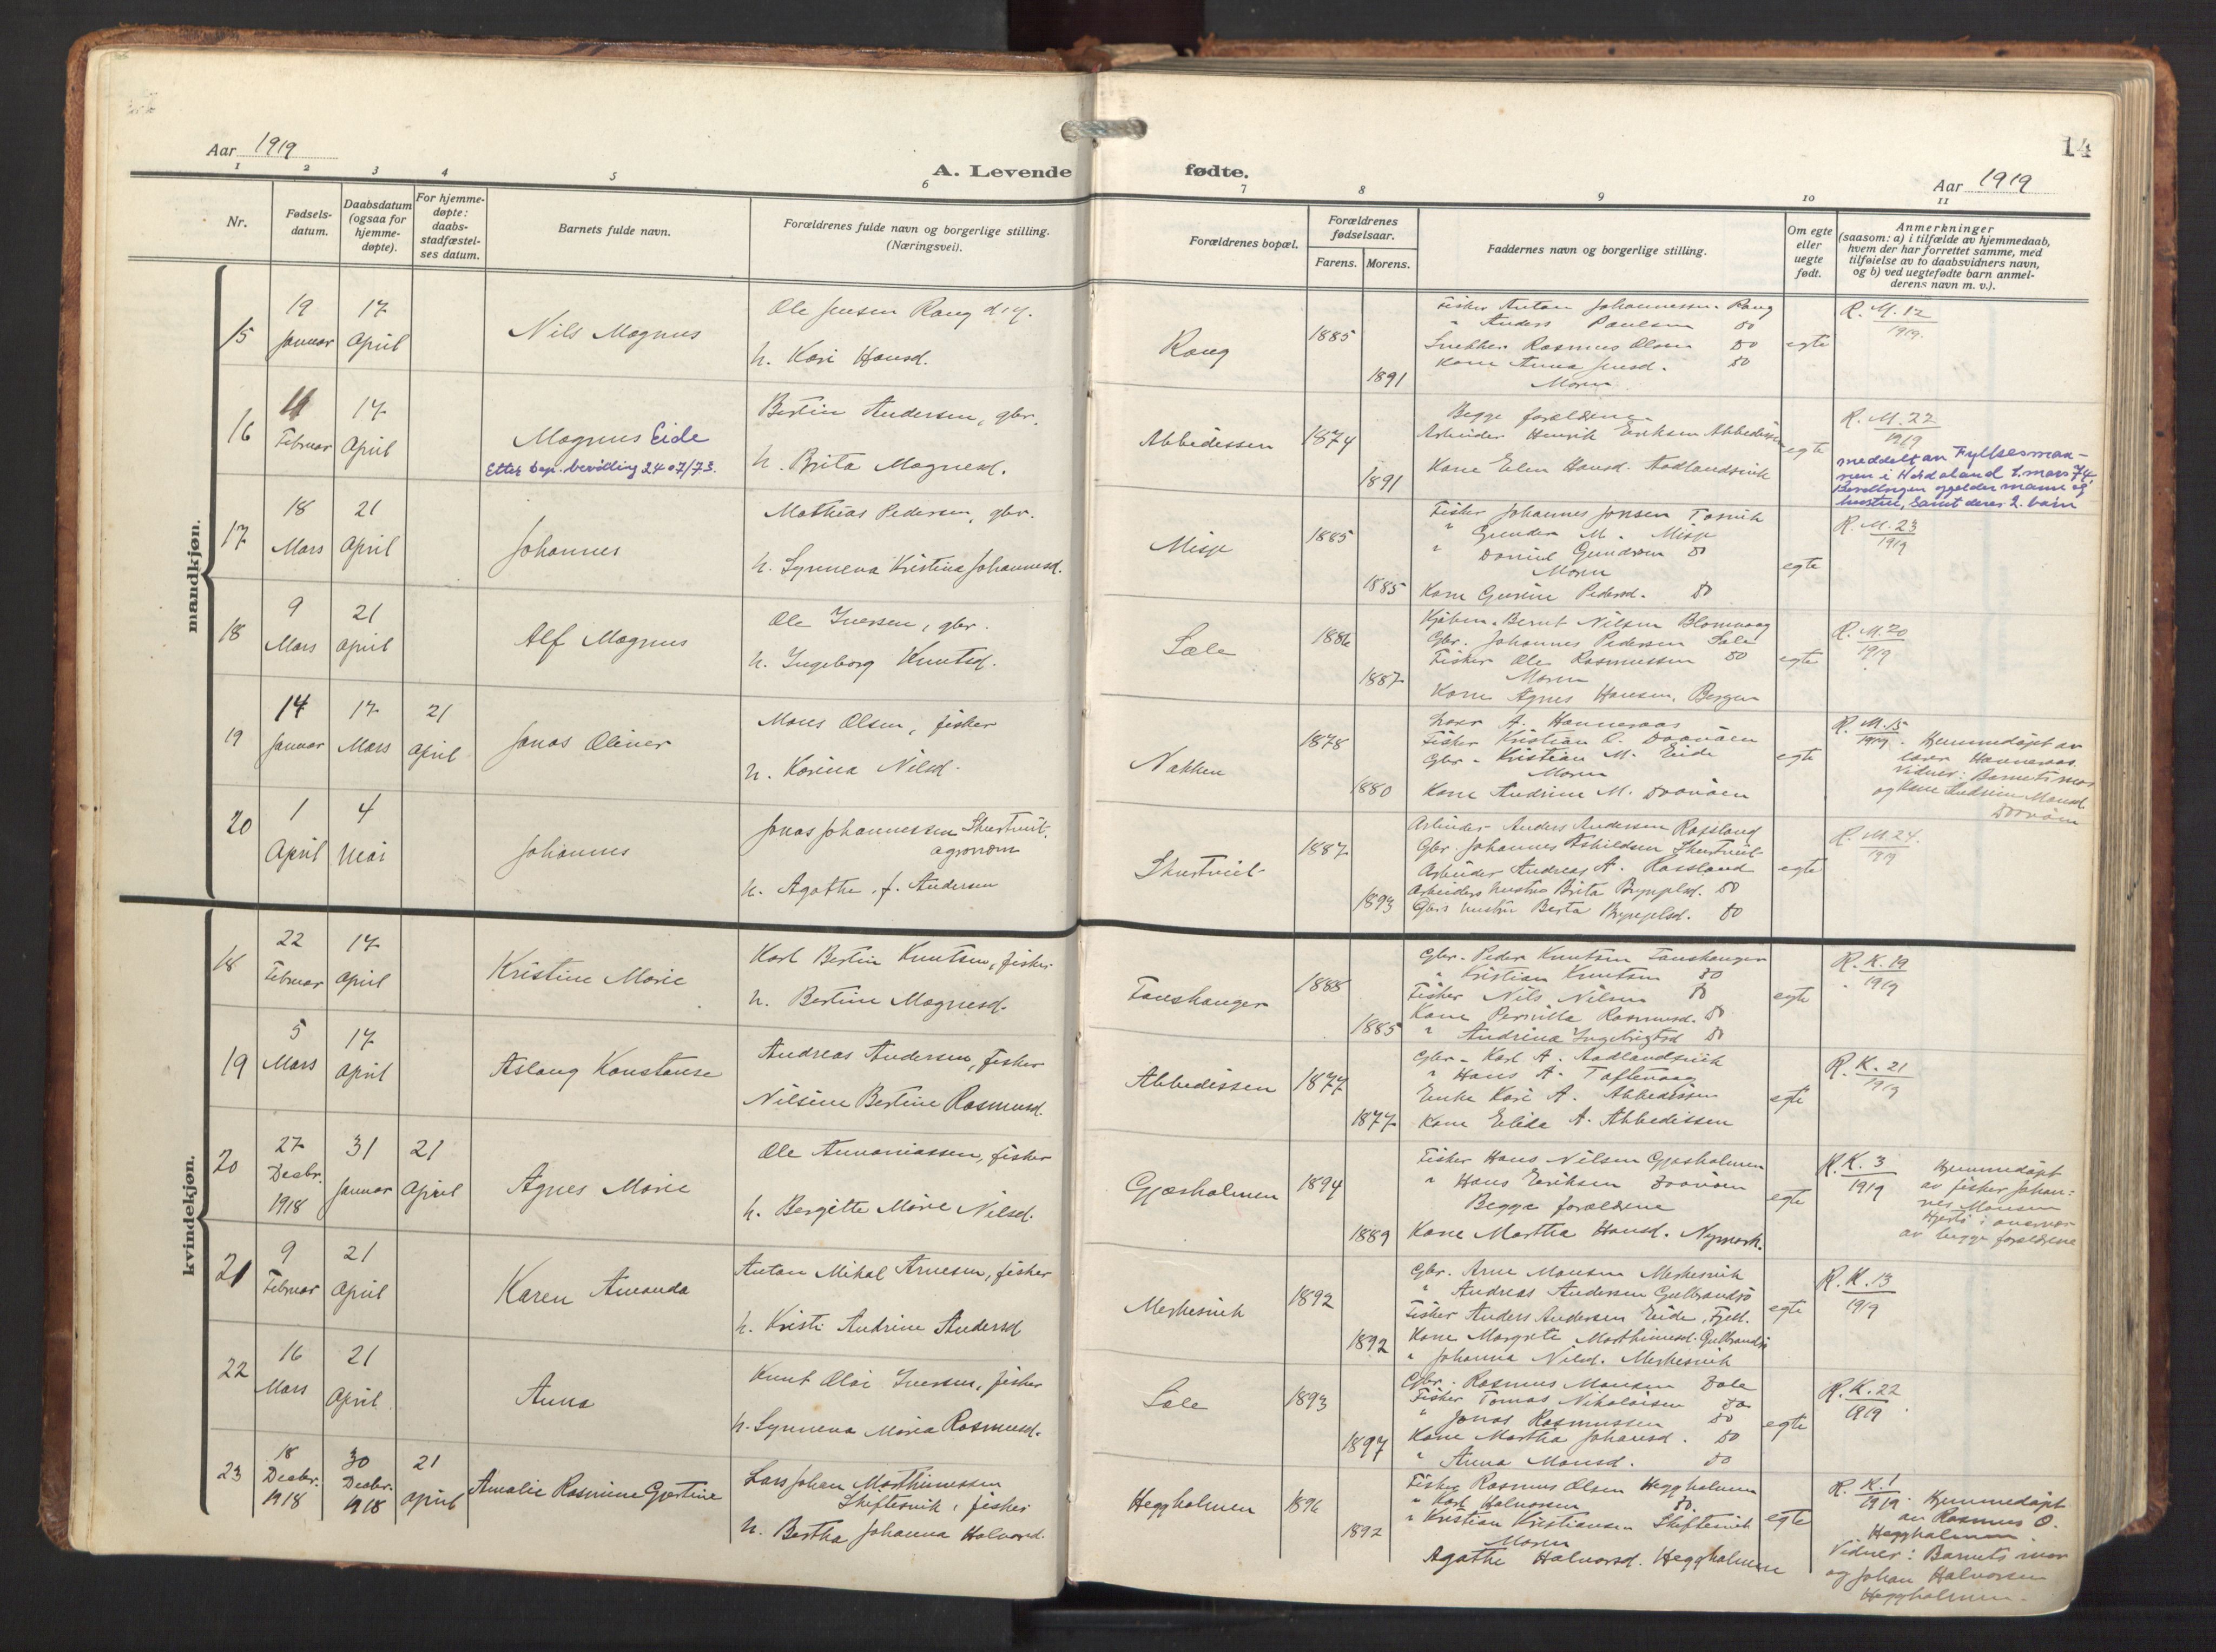 Aar 1919
A. Levende fødte.
14
Aar 1919
1 2 3 4 5 6 7 8 9 10 11
Nr.
Fødsels-
datum.
Daabsdatum
(ogsaa for
hjemme-
døpte).
For hjemme-
døpte:
daabs-
stadfæstel-
ses datum.
Barnets fulde navn.
Forældrenes fulde navn og borgerlige stilling.
(Næringsvei).
Forældrenes bopæl.
Forældrenes
fødselsaar.
Farens. Morens.
Faddernes navn og borgerlige stilling.
Om egte
eller
uegte
født.
Anmerkninger
(saasom: a) i tilfælde av hjemmedaab,
hvem der har forrettet samme, med
tilføielse av to daabsvidners navn,
og b) ved uegtefødte barn anmel-
derens navn m. v.).
mandkjøn.
15
19
Januar
17
April
Nils Magnus
Ole Jensen Rong
h. Kari Hansd.
Rong
1885
1891
Fisker Anton Johannessen Rong
" Anders Paulsen do
Snekker Rasmus Olsen do
Kone Anna Jensd. do
Moren
egte
R. M. 12
1919.
16
11
Februar
17
April
Magnus Eide
Etter dep. bevilling 24 07/73.
Bertin Andersen, gbr.
h. Brita Magnesd.
Abbedissen
1874
1891
Begge forældrene
Arbeider Henrik Eriksen Abbedissen
Kone Elen Hansd. Aadlandsvik
egte
R. M. 22
1919
meddelt av Fylkesman-
nen i Hordaland 1. mars 74
Bevillingen gjelder mann og
hustru, samt deres 2. barn
17
18
Mars
21
April
Johannes
Mathias Pedersen, gbr.
h. Synneva Kristina Johannesd.
Misje
1885
1885
Fisker Johannes Jonsen Tosvik
" Gunder M. Misje
" Daniel Gundersen do
Moren
Kone Gurine Pedersd. do
egte
R. M. 23
1919
18
9
Mars
21
April
Alf Magnus
Ole Iversen, gbr.
h. Ingeborg Knutsd.
Sæle
1886
1887
Kjøbm. Bernt Nilsen Blomvaag
Gbr. Johannes Pedersen Sæle
Fisker Ole Rasmussen do
Moren
Kone Agnes Hansen, Bergen
egte
R. M. 20
1919
19
14
Januar
17
Mars
21
April
Jonas Oliver
Mons Olsen, fisker
h. Karina Nilsd.
Nakken
1878
1880
Lærer A. Hanneraas
Fisker Kristian O. Dovøen
Gbr. Kristian M. Eide
Moren
Kone Andrine M. Dovøen
egte
R. M. 15
1919. Hjemmedøpt av
lærer Hanneraas.
Vidner: Barnets mor
og kone Andrine Monsd.
20
1
April
4
Mai
Johannes
Jonas Johannessen Skurtveit,
agronom
h. Agathe, f. Andersen
Skurtveit
1887
1893
Arbeider Anders Andersen Rossland
Gbr. Johannes Askildsen Skurtveit
Arbeider Andreas A. Rossland
Arbeiders hustru Brita Brynjelsd. do
Gbrs hustru Berta Brynjelsd. do
egte
R. M. 24.
1919
kvindekjøn.
18
22
Februar
17
April
Kristine Marie
Karl Bertin Knutsen, fisker
h. Bertine Magnesd.
Toushanger
1888
1885
Gbr. Peder Knutsen Toushanger
" Kristian Knutsen do
Fisker Nils Nilsen do
Kone Pernilla Rasmusd. do
" Andrina Ingebrigtsd do
egte
R. K. 19
1919
19
5
Mars
17
April
Aslaug Konstanse
Andreas Andersen, fisker
Nilsine Bertine Rasmusd.
Abbedissen
1877
1877
Gbr. Karl A. Aadlandsvik
" Hans A. Toftevaag
Enke Kari A. Abbedissen
Kone Elida A. Abbedissen
egte
R. K. 21
1919
20
27
Desbr.
1918
31
Januar
21
April
Agnes Marie
Ole Annaniassen, fisker
h. Bergitte Marie Nilsd.
Gjæsholmen
1894
1889
Fisker Hans Nilsen Gjæsholmen
" Hans Eriksen Dovøen
Begge forældrene
Kone Martha Hansd. Nymark.
egte
R. K. 3
1919
Hjemmedøpt
av fisker Johan-
nes Monsen
Hjertø i nærvær
av begge forældrene
21
9
Februar
21
April
Karen Amanda
Anton Mikal Arnesen, fisker
h. Kristi Andrine Andersd
Merkesvik
1892
1892
Gbr. Arne Monsen Merkesvik
" Andreas Andersen Gulbrandsø
Fisker Anders Andersen Eide, Fjell.
Kone Margrete Marthinusd. Gulbrandsø
" Johanna Nilsd. Merkesvik
egte
R. K. 13
1919
22
16
Mars
21
April
Anna
Knut Olai Iversen, fisker
h. Synneva Maria Rasmusd.
Sæle
1893
1897
Gbr. Rasmus Monsen Dale
Fisker Tomas Nikolaisen do
" Jonas Rasmussen do
Kone Martha Johansd. do
" Anna Monsd. do
egte
R. K. 22
1919
23
18
Desbr.
1918
30
Desbr.
1918
21
April
Amalie Rasmine Gjertine
Lars Johan Marthinussen
Skiftesvik, fisker
h. Bertha Johanna Halvorsd.
Heggholmen
1896
1892
Fisker Rasmus Olsen Heggholmen
" Karl Halvorsen do.
" Kristian Kristiansen Skiftesvik
Moren
Agathe Halvorsd. Heggholmen
egte
R. K. 1
1919. Hjemmedøpt
av Rasmus O.
Heggholmen
Vidner: Barnets mor
og Johan Halvorsen
Heggholmen.